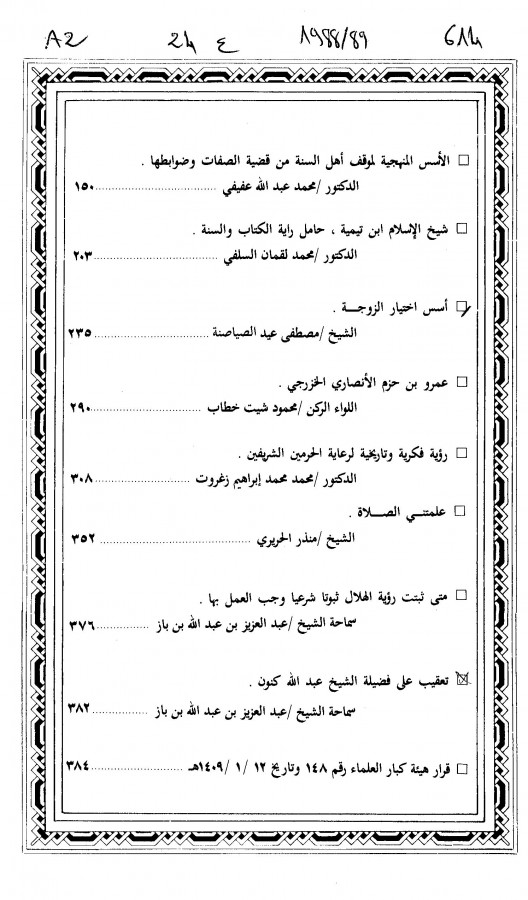 A2 24 ع 1988/89 614
□ الأسس المنهجية لموقف أهل السنة من قضية الصفات وضوابطها .
الدكتور /محمد عبد الله عفيفي ............................ ١٥٠
□ شيخ الإسلام ابن تيمية ، حامل راية الكتاب والسنة .
الدكتور /محمد لقمان السلفي ............................ ٢٠٣
□ أسس اختيار الزوجـــة .
الشيخ /مصطفى عيد الصياصنة ............................ ٢٣٥
□ عمرو بن حزم الأنصاري الخزرجي .
اللواء الركن /محمود شيت خطاب ............................ ٢٩٠
□ رؤية فكرية وتاريخية لرعاية الحرمين الشريفين .
الدكتور /محمد محمد إبراهيم زغروت ............................ ٣٠٨
□ علمتنـــي الصـــلاة .
الشيخ /منذر الحريري ............................ ٣٥٢
□ متى ثبتت رؤية الهلال ثبوتا شرعيا وجب العمل بها .
سماحة الشيخ /عبد العزيز بن عبد الله بن باز ................ ٣٧٦
☒ تعقيب على فضيلة الشيخ عبد الله كنون .
سماحة الشيخ /عبد العزيز بن عبد الله بن باز ................ ٣٨٢
□ قرار هيئة كبار العلماء رقم ١٤٨ وتاريخ ١٢ /١ /١٤٠٩هـ ................ ٣٨٤